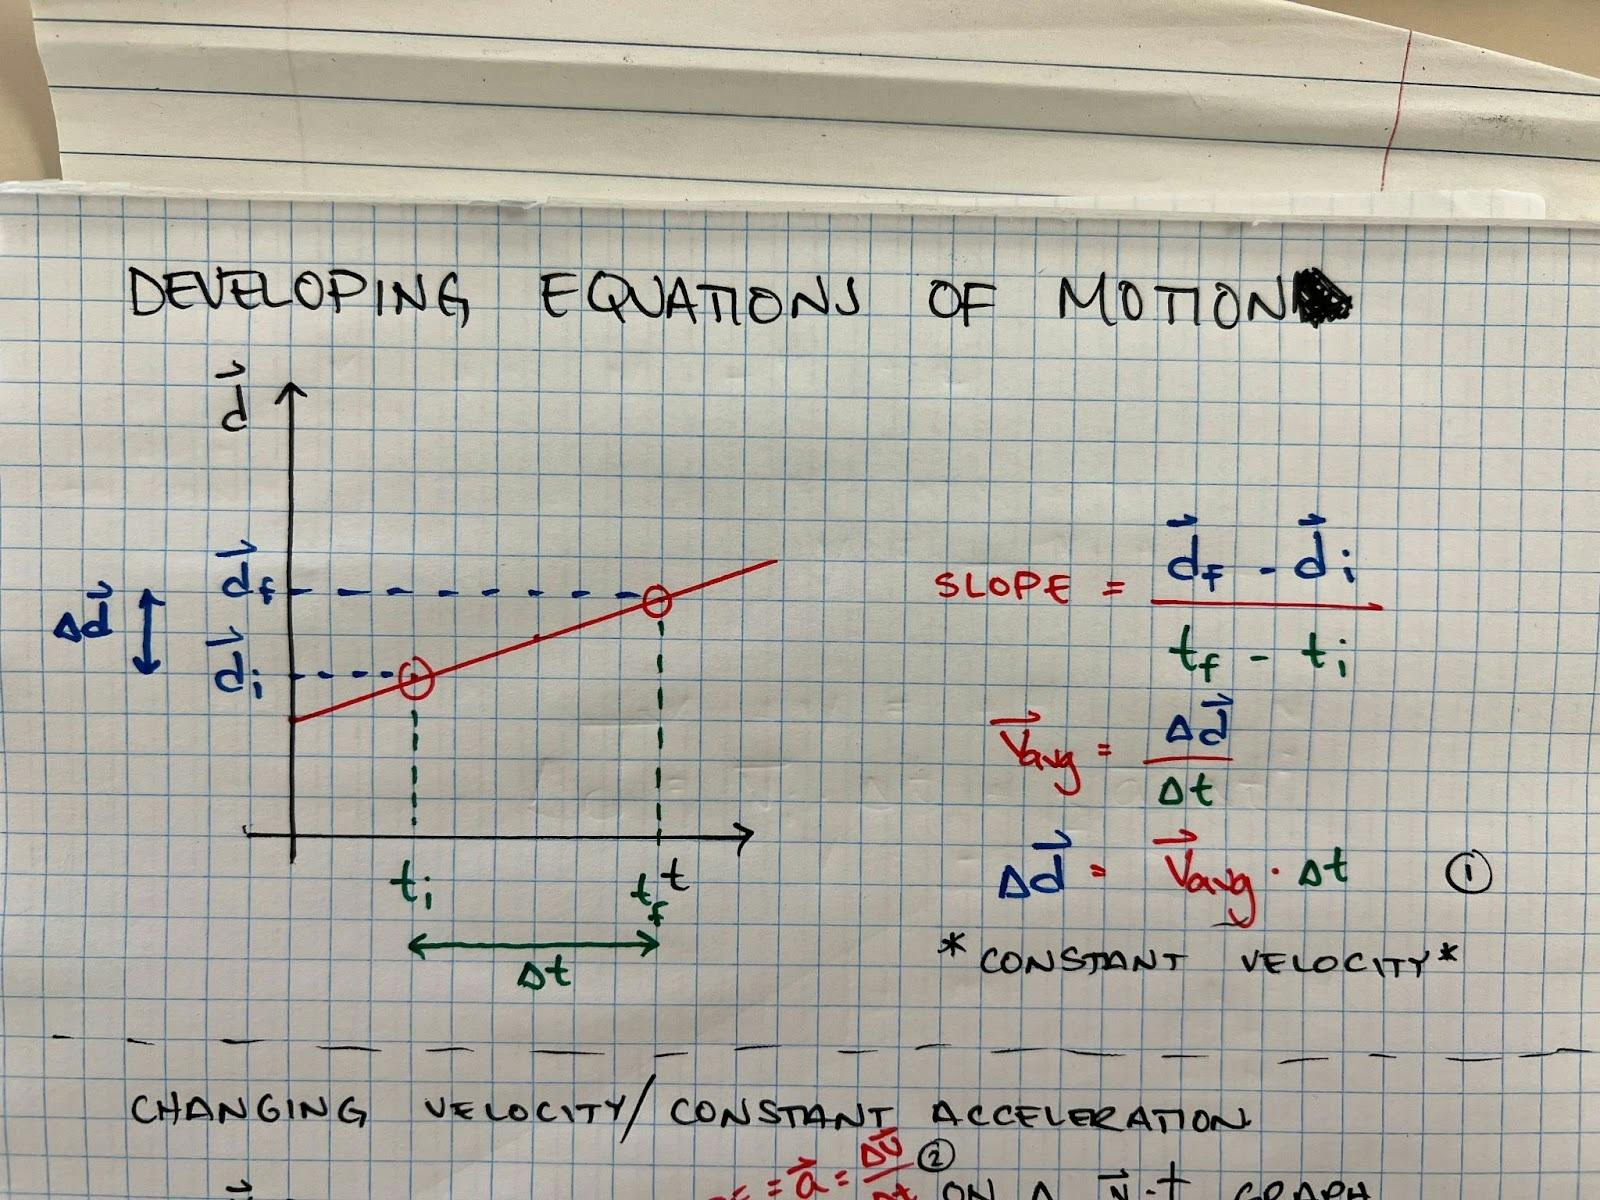 DEVELOPING EQUATIONS OF MOTION
d⃗
d⃗f
Δd⃗
d⃗i
ti
tf
t
Δt
SLOPE = (d⃗f - d⃗i) / (tf - ti)
V⃗avg = Δd⃗ / Δt
Δd⃗ = V⃗avg · Δt ①
*CONSTANT VELOCITY*
CHANGING VELOCITY/CONSTANT ACCELERATION
= a⃗ = Δv⃗ / Δt ②
ON A v⃗-t GRAPH